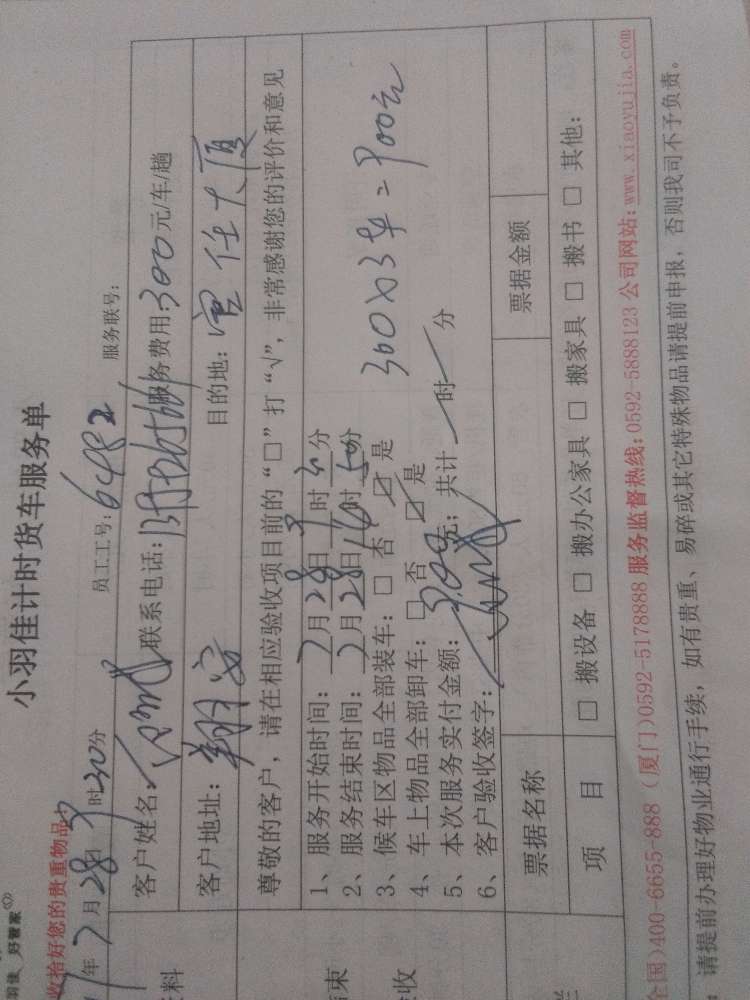 小羽佳计时货车服务单
好管家
收拾好您的贵重物品
年7月28日9时30分 员工工号:6482 服务联号:
客户姓名: 联系电话: 服务费用:300元/车/趟
客户地址:翔安 目的地:宣任大厦
尊敬的客户，请在相应验收项目前的“□”打“√”，非常感谢您的评价和意见
1、服务开始时间:7月28日9时30分
2、服务结束时间:7月28日16时50分
3、候车区物品全部装车: □ 否 ☑ 是
4、车上物品全部卸车: □ 否 ☑ 是
300×3车=900元
5、本次服务实付金额: 元; 共计 时 分
6、客户验收签字:
票据名称 票据金额
项 目 □ 搬设备 □ 搬办公家具 □ 搬家具 □ 搬书 □ 其他:
全国)400-6655-888 (厦门)0592-5178888 服务监督热线:0592-5888123 公司网站:www.xiaoyujia.com
请提前办理好物业通行手续，如有贵重、易碎或其它特殊物品请提前申报，否则我司不予负责。